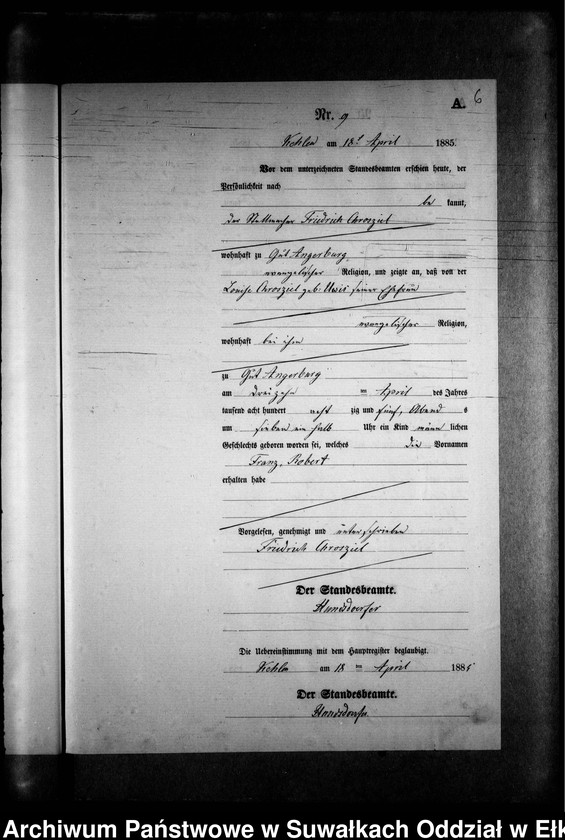 A. 6
Nr. 9
Kehlen am 18t April 1885.
Vor dem unterzeichneten Standesbeamten erschien heute, der
Persönlichkeit nach
be kannt,
der Stellmacher Friedrich Chrosziel
wohnhaft zu Gut Angerburg,
evangelischer Religion, und zeigte an, daß von der
Louise Chrosziel geb. seiner Ehefrau
evangelischer Religion,
wohnhaft bei ihm
zu Gut Angerburg
am dreizehn ten April des Jahres
tausend acht hundert acht zig und fünf, Abend s
um sieben ein halb Uhr ein Kind männ lichen
Geschlechts geboren worden sei, welches die Vornamen
Franz, Robert
erhalten habe
Vorgelesen, genehmigt und unterschrieben
Friedrich Chrosziel
Der Standesbeamte.
Hunsdorfer
Die Uebereinstimmung mit dem Hauptregister beglaubigt.
Kehlen am 18 ten April 1885
Der Standesbeamte.
Hunsdorfer
Archiwum Państwowe w Suwałkach Oddział w Ełk